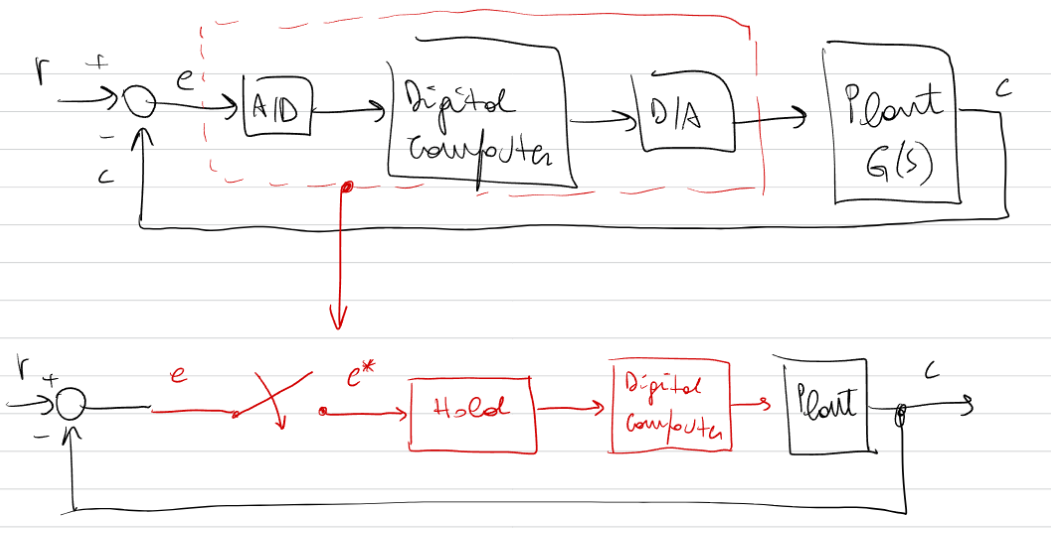 r + e A/D Digital Computer D/A Plant G(S) c
-
c
r + e e* Hold Digital Computer Plant c
-